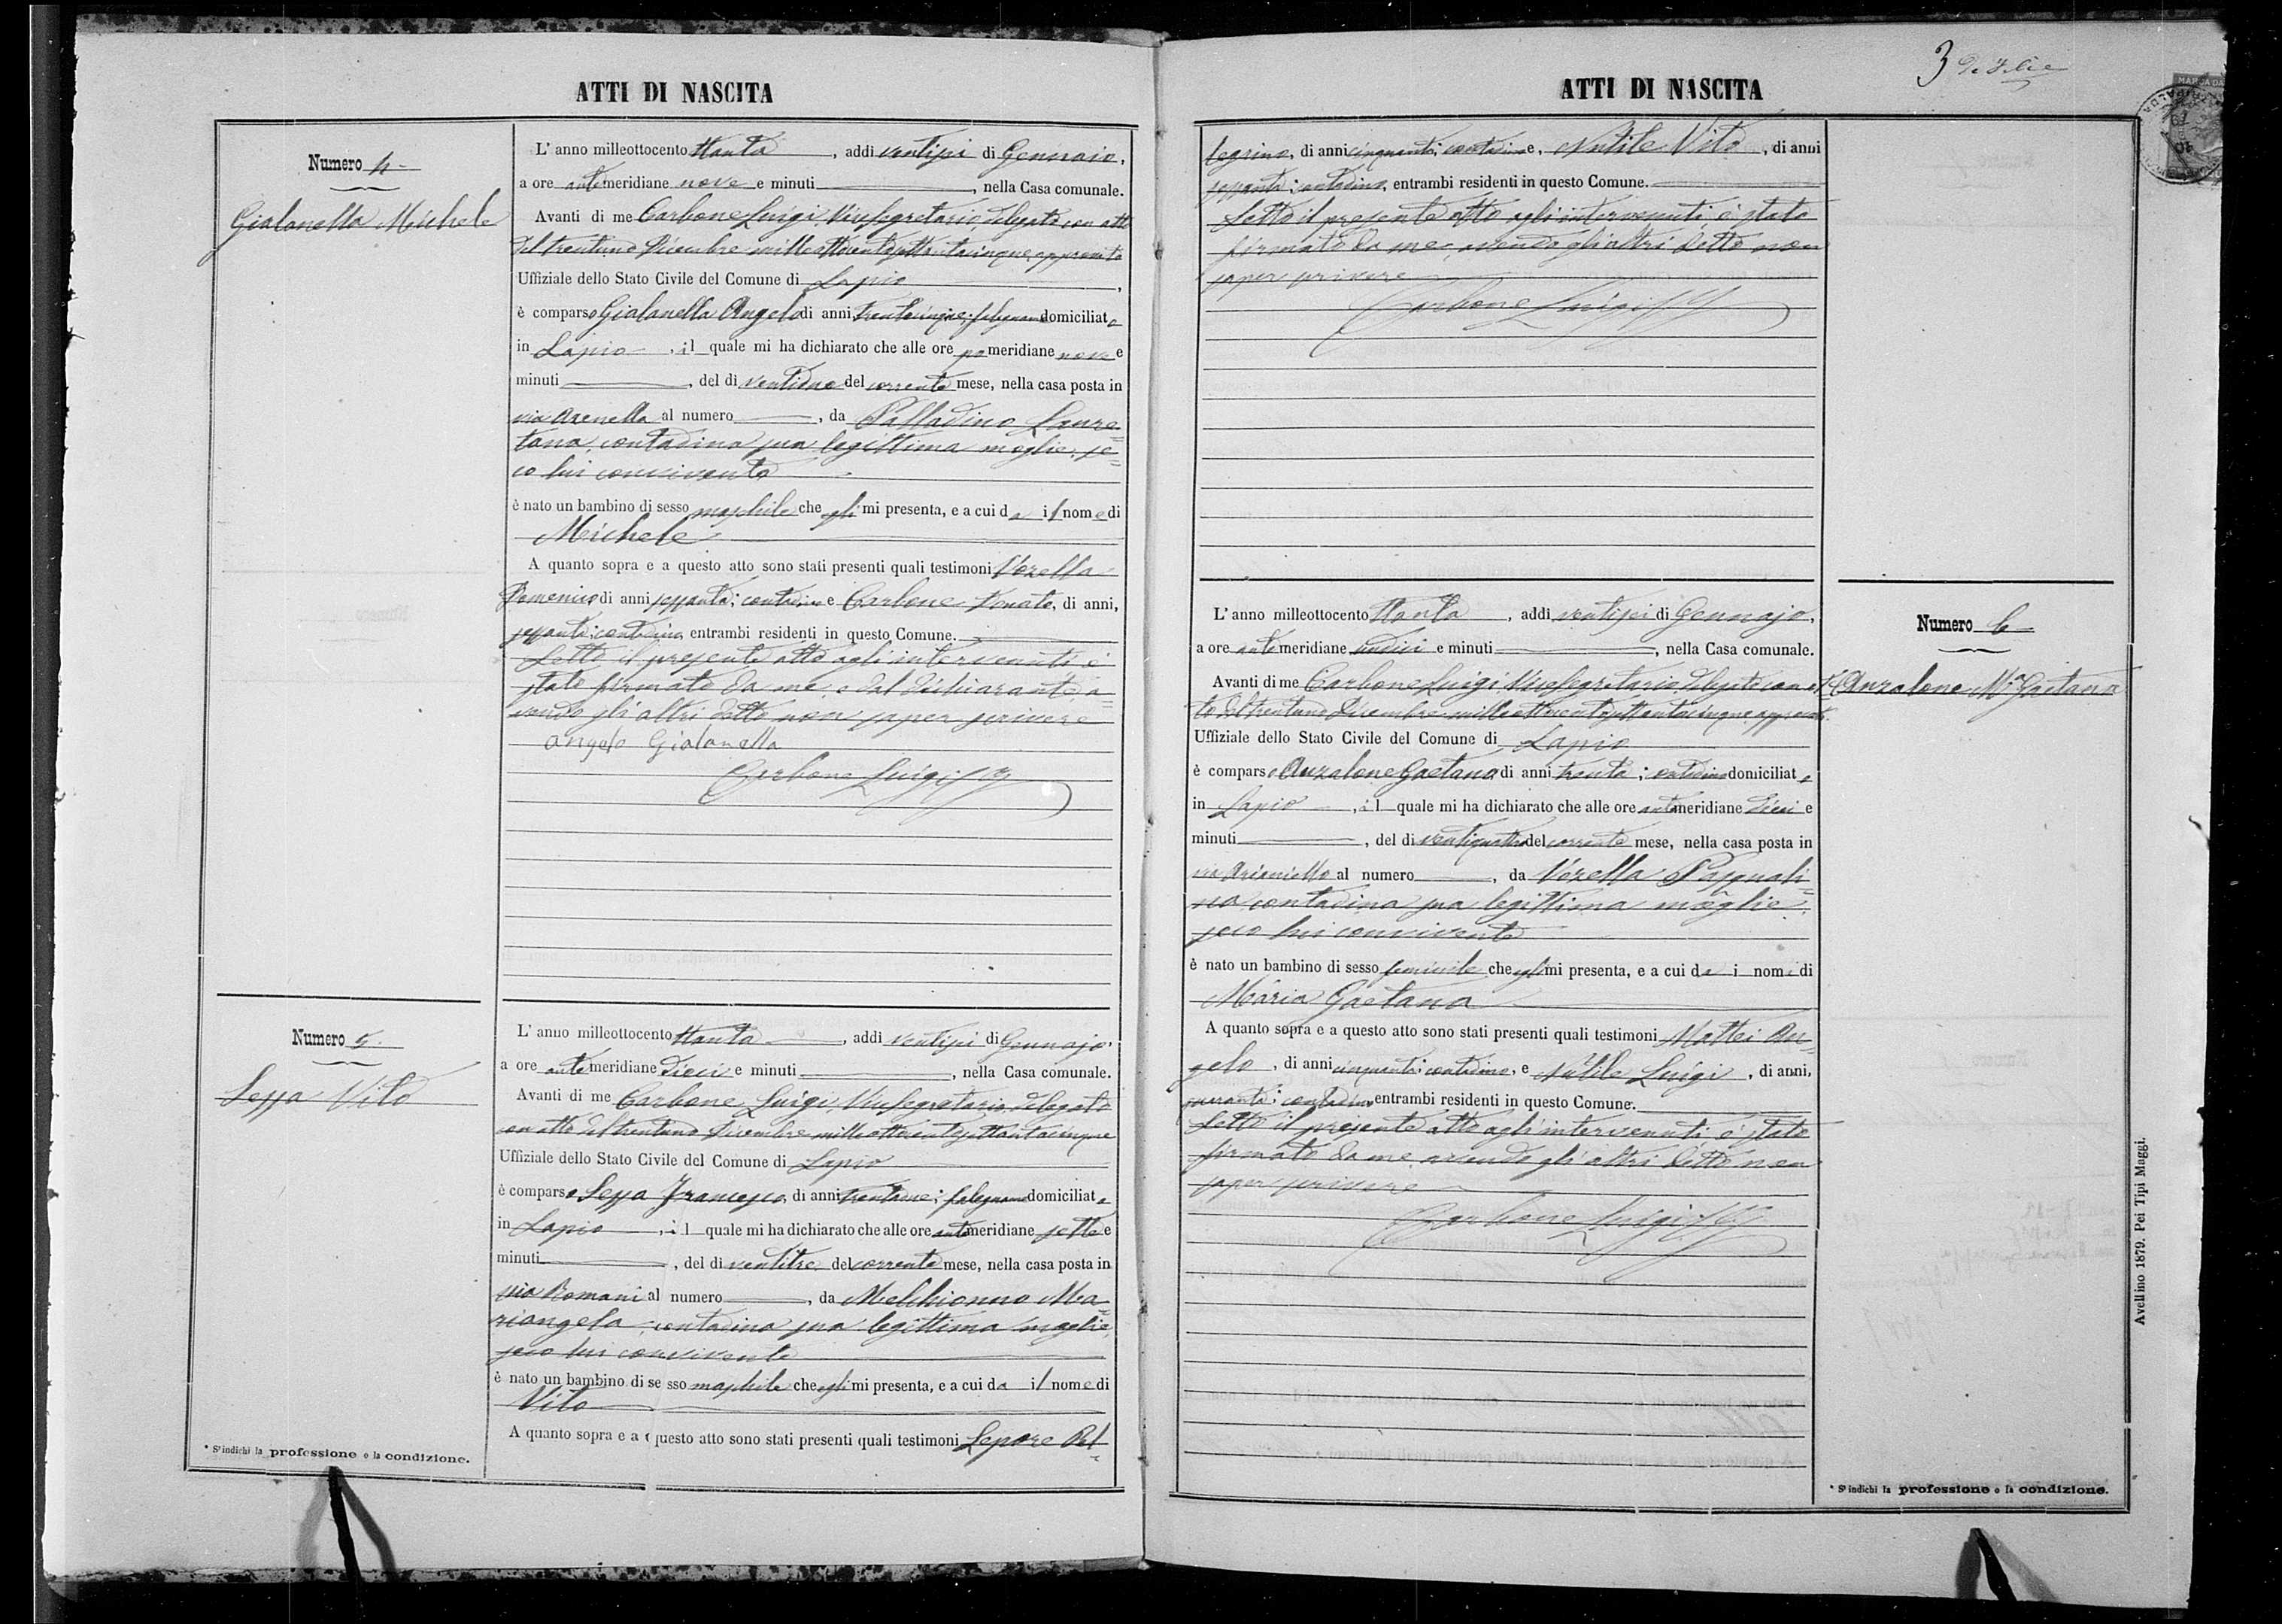 ATTI DI NASCITA
Numero 4
Gialanella Michele
L' anno milleottocento ttanta, addì ventisei di Gennaio,
a ore antemeridiane nove e minuti , nella Casa comunale.
Avanti di me Carbone Luigi, Vicesegretario, delegato con atto
del trentuno Dicembre milleottocentosettantacinque, approvato
Uffiziale dello Stato Civile del Comune di Lapio,
è comparso Gialanella Angelo di anni trentacinque; falegname domiciliato
in Lapio, il quale mi ha dichiarato che alle ore pomeridiane nove e
minuti , del dì ventidue del corrente mese, nella casa posta in
via Arenella al numero , da Palladino Laure=
tana, contadina sua legittima moglie, se=
co lui convivente
è nato un bambino di sesso maschile che egli mi presenta, e a cui da il nome di
Michele
A quanto sopra e a questo atto sono stati presenti quali testimoni Vozella
Domenico di anni sessanta; contadino e Carbone Donato, di anni,
sessanta; contadino entrambi residenti in questo Comune.
Letto il presente atto agli intervenuti è
stato firmato da me e dal dichiarante a
vendo gli altri detto non saper scrivere
Angelo Gialanella
Carbone Luigi
Numero 5.
Sessa Vito
L' anno milleottocento ttanta, addì ventisei di Gennajo,
a ore antemeridiane dieci e minuti , nella Casa comunale.
Avanti di me Carbone Luigi, Vicesegretario delegato
con atto del trentuno Dicembre milleottocentosettantacinque
Uffiziale dello Stato Civile del Comune di Lapio
è comparso Sessa Francesco, di anni ; falegname domiciliato
in Lapio, il quale mi ha dichiarato che alle ore antemeridiane sette e
minuti , del dì ventitre del corrente mese, nella casa posta in
via Romani al numero , da Melchionno Ma=
riangela, contadina sua legittima moglie,
seco lui convivente
è nato un bambino di sesso maschile che egli mi presenta, e a cui da il nome di
Vito
A quanto sopra e a questo atto sono stati presenti quali testimoni Lepore Pel
* S'indichi la professione o la condizione.
ATTI DI NASCITA
3
legrino, di anni cinquanta; contadino e, Nutile Vito, di anni
sessanta; contadino, entrambi residenti in questo Comune.
Letto il presente atto agli intervenuti, è stato
firmato da me, avendo gli altri detto non
saper scrivere
Carbone Luigi
L' anno milleottocento ttanta, addì ventisei di Gennajo,
a ore antemeridiane undici e minuti , nella Casa comunale.
Avanti di me Carbone Luigi Vicesegretario delegato con at
to del trentuno Dicembre milleottocentosettantacinque approvato
Uffiziale dello Stato Civile del Comune di Lapio
è comparso Anzalone Gaetano di anni trenta; contadino domiciliato
in Lapio, il quale mi ha dichiarato che alle ore antemeridiane dieci e
minuti , del dì ventiquattro del corrente mese, nella casa posta in
via Arianiello al numero , da Vozella Pasquali=
na, contadina sua legittima moglie,
seco lui convivente
è nato un bambino di sesso feminile che egli mi presenta, e a cui da i nome di
Maria Gaetana
A quanto sopra e a questo atto sono stati presenti quali testimoni Mattei An=
gelo, di anni cinquanta; contadino, e Nutile Luigi, di anni,
; contadino entrambi residenti in questo Comune.
Letto il presente atto agli intervenuti, è stato
firmato da me, avendo gli altri detto non
saper scrivere
Carbone Luigi
Numero 6
Anzalone Mª Gaetana
* S'indichi la professione o la condizione.
Avellino 1879. Pei Tipi Maggi.